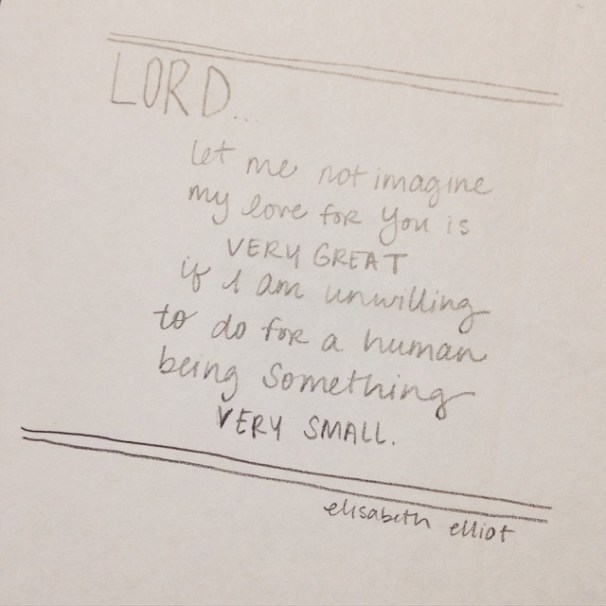 LORD...
let me not imagine
my love for you is
VERY GREAT
if I am unwilling
to do for a human
being something
VERY SMALL.
elisabeth elliot